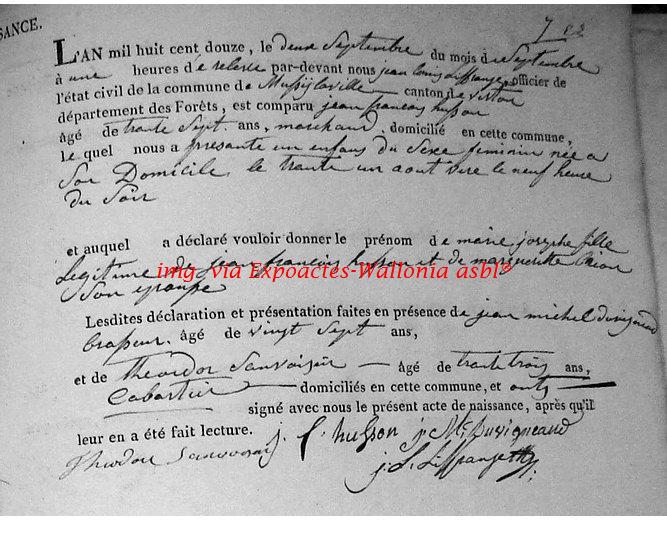 SANCE.
L'AN mil huit cent douze, le deux Septembre du mois de Septembre
à une heures de relevée par-devant nous jean louis officier de
l'état civil de la commune de canton de virton
département des Forêts, est comparu jean francois husson
âgé de trante Sept ans, marchand, domicilié en cette commune,
le quel nous a presante un enfans du Sexe feminin née a
Son Domicile le trante un aout vere le neuf heure
du Soir
et auquel a déclaré vouloir donner le prénom de marie josephe fille
Legitime de jean francois husson et de margueritte
Son epouse
img via Expoactes-Wallonia asbl©
Lesdites déclaration et présentation faites en présence de jean michel
brasseur, âgé de vingt Sept ans,
et de theodor âgé de trante trois ans,
Cabartier domiciliés en cette commune, et onts
signé avec nous le présent acte de naissance, après qu'il
leur en a été fait lecture. j. f. husson j. M. Duvigneaud